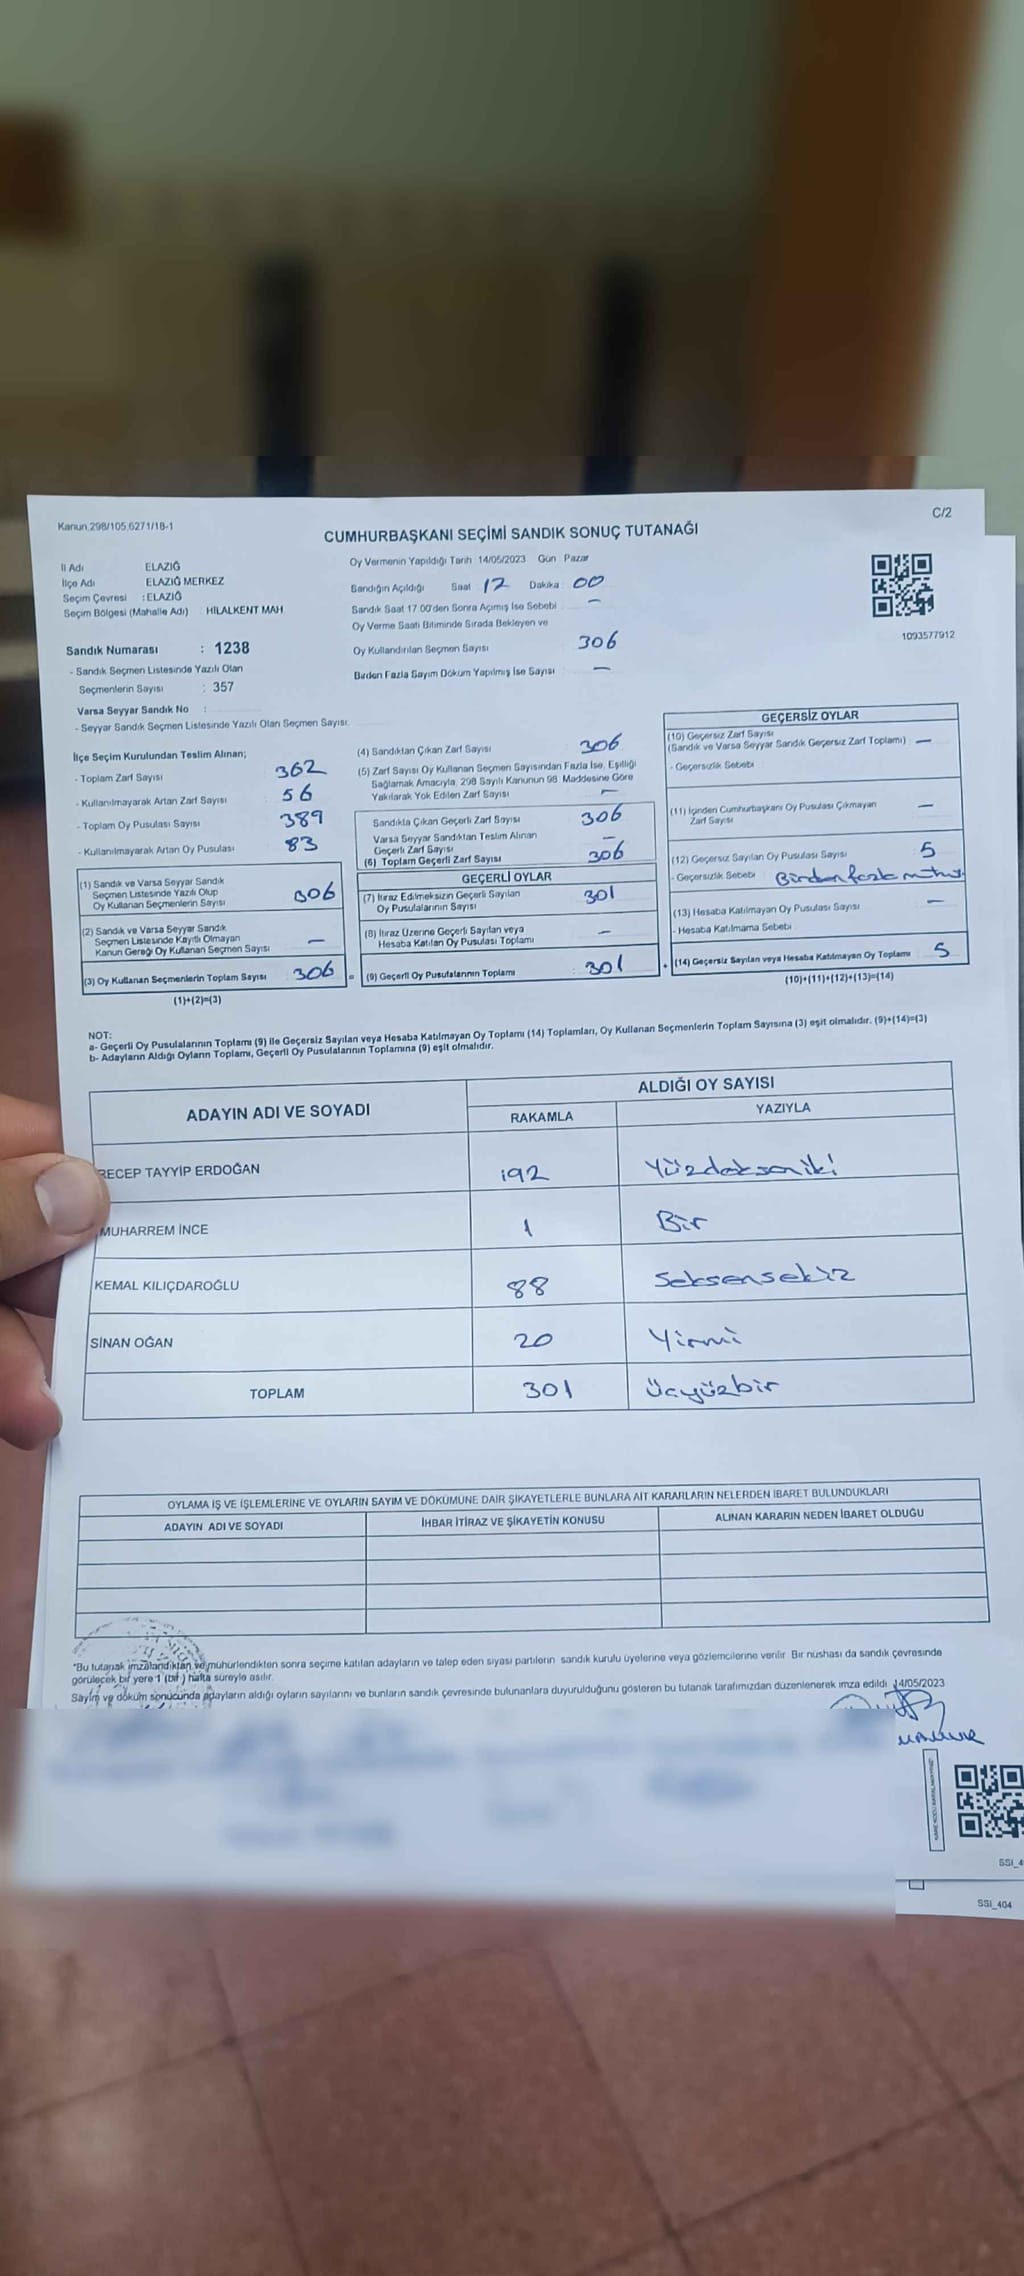 Kanun.298/105,6271/18-1
C/2
CUMHURBAŞKANI SEÇİMİ SANDIK SONUÇ TUTANAĞI
İl Adı ELAZIĞ
İlçe Adı ELAZIĞ MERKEZ
Seçim Çevresi : ELAZIĞ
Seçim Bölgesi (Mahalle Adı) : HİLALKENT MAH
Oy Vermenin Yapıldığı Tarih : 14/05/2023 Gün : Pazar
Sandığın Açıldığı Saat 17 Dakika : 00
Sandık Saat 17.00'den Sonra Açılmış İse Sebebi –
Oy Verme Saati Bitiminde Sırada Bekleyen ve
Oy Kullandırılan Seçmen Sayısı 306
Birden Fazla Sayım Döküm Yapılmış İse Sayısı –
1093577912
Sandık Numarası : 1238
- Sandık Seçmen Listesinde Yazılı Olan
Seçmenlerin Sayısı : 357
Varsa Seyyar Sandık No :
- Seyyar Sandık Seçmen Listesinde Yazılı Olan Seçmen Sayısı:
İlçe Seçim Kurulundan Teslim Alınan;
- Toplam Zarf Sayısı 362
- Kullanılmayarak Artan Zarf Sayısı 56
- Toplam Oy Pusulası Sayısı 389
- Kullanılmayarak Artan Oy Pusulası 83
(1) Sandık ve Varsa Seyyar Sandık
Seçmen Listesinde Yazılı Olup
Oy Kullanan Seçmenlerin Sayısı 306
(2) Sandık ve Varsa Seyyar Sandık
Seçmen Listesinde Kayıtlı Olmayan
Kanun Gereği Oy Kullanan Seçmen Sayısı –
(3) Oy Kullanan Seçmenlerin Toplam Sayısı 306
(1)+(2)=(3)
(4) Sandıktan Çıkan Zarf Sayısı 306
(5) Zarf Sayısı Oy Kullanan Seçmen Sayısından Fazla İse, Eşitliği
Sağlamak Amacıyla, 298 Sayılı Kanunun 98. Maddesine Göre
Yakılarak Yok Edilen Zarf Sayısı –
Sandıkta Çıkan Geçerli Zarf Sayısı 306
Varsa Seyyar Sandıktan Teslim Alınan
Geçerli Zarf Sayısı –
(6) Toplam Geçerli Zarf Sayısı 306
GEÇERLİ OYLAR
(7) İtiraz Edilmeksizin Geçerli Sayılan
Oy Pusulalarının Sayısı 301
(8) İtiraz Üzerine Geçerli Sayılan veya
Hesaba Katılan Oy Pusulası Toplamı –
= (9) Geçerli Oy Pusulalarının Toplamı : 301
GEÇERSİZ OYLAR
(10) Geçersiz Zarf Sayısı
(Sandık ve Varsa Seyyar Sandık Geçersiz Zarf Toplamı) –
- Geçersizlik Sebebi :
(11) İçinden Cumhurbaşkanı Oy Pusulası Çıkmayan
Zarf Sayısı –
(12) Geçersiz Sayılan Oy Pusulası Sayısı 5
- Geçersizlik Sebebi : Birden fazla mühür
(13) Hesaba Katılmayan Oy Pusulası Sayısı –
- Hesaba Katılmama Sebebi
+ (14) Geçersiz Sayılan veya Hesaba Katılmayan Oy Toplamı 5
(10)+(11)+(12)+(13)=(14)
NOT:
a- Geçerli Oy Pusulalarının Toplamı (9) ile Geçersiz Sayılan veya Hesaba Katılmayan Oy Toplamı (14) Toplamları, Oy Kullanan Seçmenlerin Toplam Sayısına (3) eşit olmalıdır. (9)+(14)=(3)
b- Adayların Aldığı Oyların Toplamı, Geçerli Oy Pusulalarının Toplamına (9) eşit olmalıdır.
ADAYIN ADI VE SOYADI
ALDIĞI OY SAYISI
RAKAMLA YAZIYLA
RECEP TAYYİP ERDOĞAN 192 Yüzdoksaniki
MUHARREM İNCE 1 Bir
KEMAL KILIÇDAROĞLU 88 Seksensekiz
SİNAN OĞAN 20 Yirmi
TOPLAM 301 Üçyüzbir
OYLAMA İŞ VE İŞLEMLERİNE VE OYLARIN SAYIM VE DÖKÜMÜNE DAİR ŞİKAYETLERLE BUNLARA AİT KARARLARIN NELERDEN İBARET BULUNDUKLARI
ADAYIN ADI VE SOYADI İHBAR İTİRAZ VE ŞİKAYETİN KONUSU ALINAN KARARIN NEDEN İBARET OLDUĞU
"Bu tutanak imzalandıktan ve mühürlendikten sonra seçime katılan adayların ve talep eden siyasi partilerin sandık kurulu üyelerine veya gözlemcilerine verilir. Bir nüshası da sandık çevresinde
görülecek bir yere 1 (bir) hafta süreyle asılır.
Sayım ve döküm sonucunda adayların aldığı oyların sayılarını ve bunların sandık çevresinde bulunanlara duyurulduğunu gösteren bu tutanak tarafımızdan düzenlenerek imza edildi. 14/05/2023
SSI_4
SSI_404